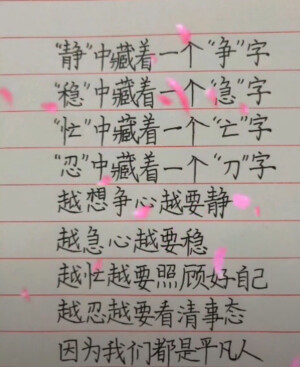 “静”中藏着一个“争”字
“稳”中藏着一个“急”字
“忙”中藏着一个“亡”字
“忍”中藏着一个“刀”字
越想争心越要静
越急心越要稳
越忙越要照顾好自己
越忍越要看清事态
因为我们都是平凡人